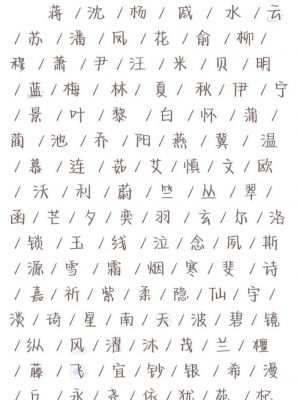 蒋 / 沈 / 杨 / 戚 / 水 / 云
/ 苏 / 潘 / 凤 / 花 / 俞 / 柳 /
穆 / 萧 / 尹 / 汪 / 米 / 贝 / 明
/ 蓝 / 梅 / 林 / 夏 / 秋 / 伊 / 宁
/ 景 / 叶 / 黎 / 白 / 怀 / 蒲 /
蔺 / 池 / 乔 / 阳 / 燕 / 冀 / 温
/ 慕 / 连 / 茹 / 艾 / 慎 / 文 / 欧
/ 沃 / 利 / 蔚 / 竺 / 丛 / 翠 /
函 / 芒 / 夕 / 奕 / 羽 / 玄 / 尔 / 洛
/ 锁 / 玉 / 线 / 泣 / 念 / 夙 / 斯
/ 源 / 雪 / 霜 / 烟 / 寒 / 斐 / 诗
/ 嘉 / 祈 / 紫 / 柔 / 隐 / 仙 / 宇 /
淡 / 琦 / 星 / 南 / 天 / 波 / 碧 / 镜
/ 纵 / 风 / 濯 / 沐 / 茂 / 兰 / 檀
/ 藤 / 飞 / 宜 / 钞 / 银 / 希 / 漫
/ 丘 / 永 / 尧 / 依 / 犹 / 苑 /